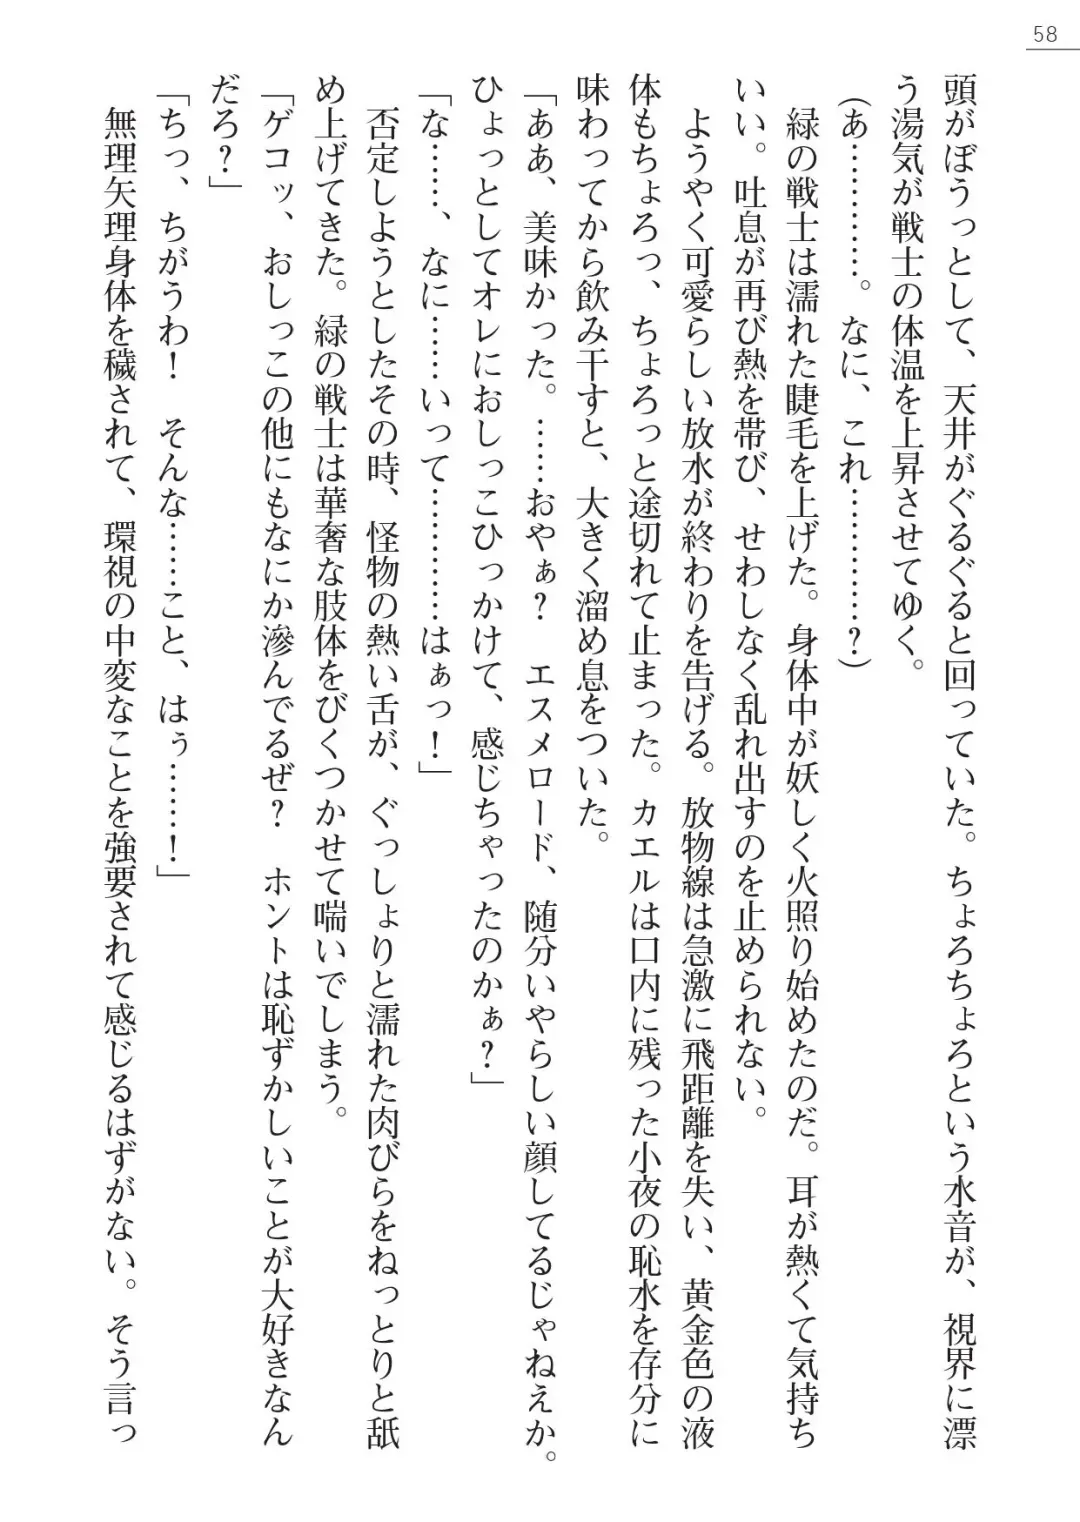 58
頭がぼうっとして、天井がぐるぐると回っていた。ちょろちょろという水音が、視界に漂
う湯気が戦士の体温を上昇させてゆく。
（あ…………。なに、これ…………？）
緑の戦士は濡れた睫毛を上げた。身体中が妖しく火照り始めたのだ。耳が熱くて気持ち
いい。吐息が再び熱を帯び、せわしなく乱れ出すのを止められない。
ようやく可愛らしい放水が終わりを告げる。放物線は急激に飛距離を失い、黄金色の液
体もちょろっ、ちょろっと途切れて止まった。カエルは口内に残った小夜の恥水を存分に
味わってから飲み干すと、大きく溜め息をついた。
「ああ、美味かった。……おやぁ？　エスメロード、随分いやらしい顔してるじゃねえか。
ひょっとしてオレにおしっこひっかけて、感じちゃったのかぁ？」
「な……、なに……いって…………はぁっ！」
否定しようとしたその時、怪物の熱い舌が、ぐっしょりと濡れた肉びらをねっとりと舐
め上げてきた。緑の戦士は華奢な肢体をびくつかせて喘いでしまう。
「ゲコッ、おしっこの他にもなにか滲んでるぜ？　ホントは恥ずかしいことが大好きなん
だろ？」
「ちっ、ちがうわ！　そんな……こと、はぅ……！」
無理矢理身体を穢されて、環視の中変なことを強要されて感じるはずがない。そう言っ